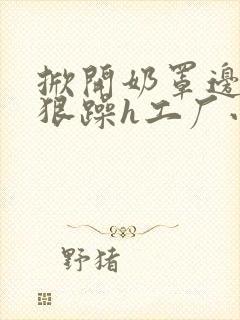 掀開奶罩邊
狠躁h工厂
野猪